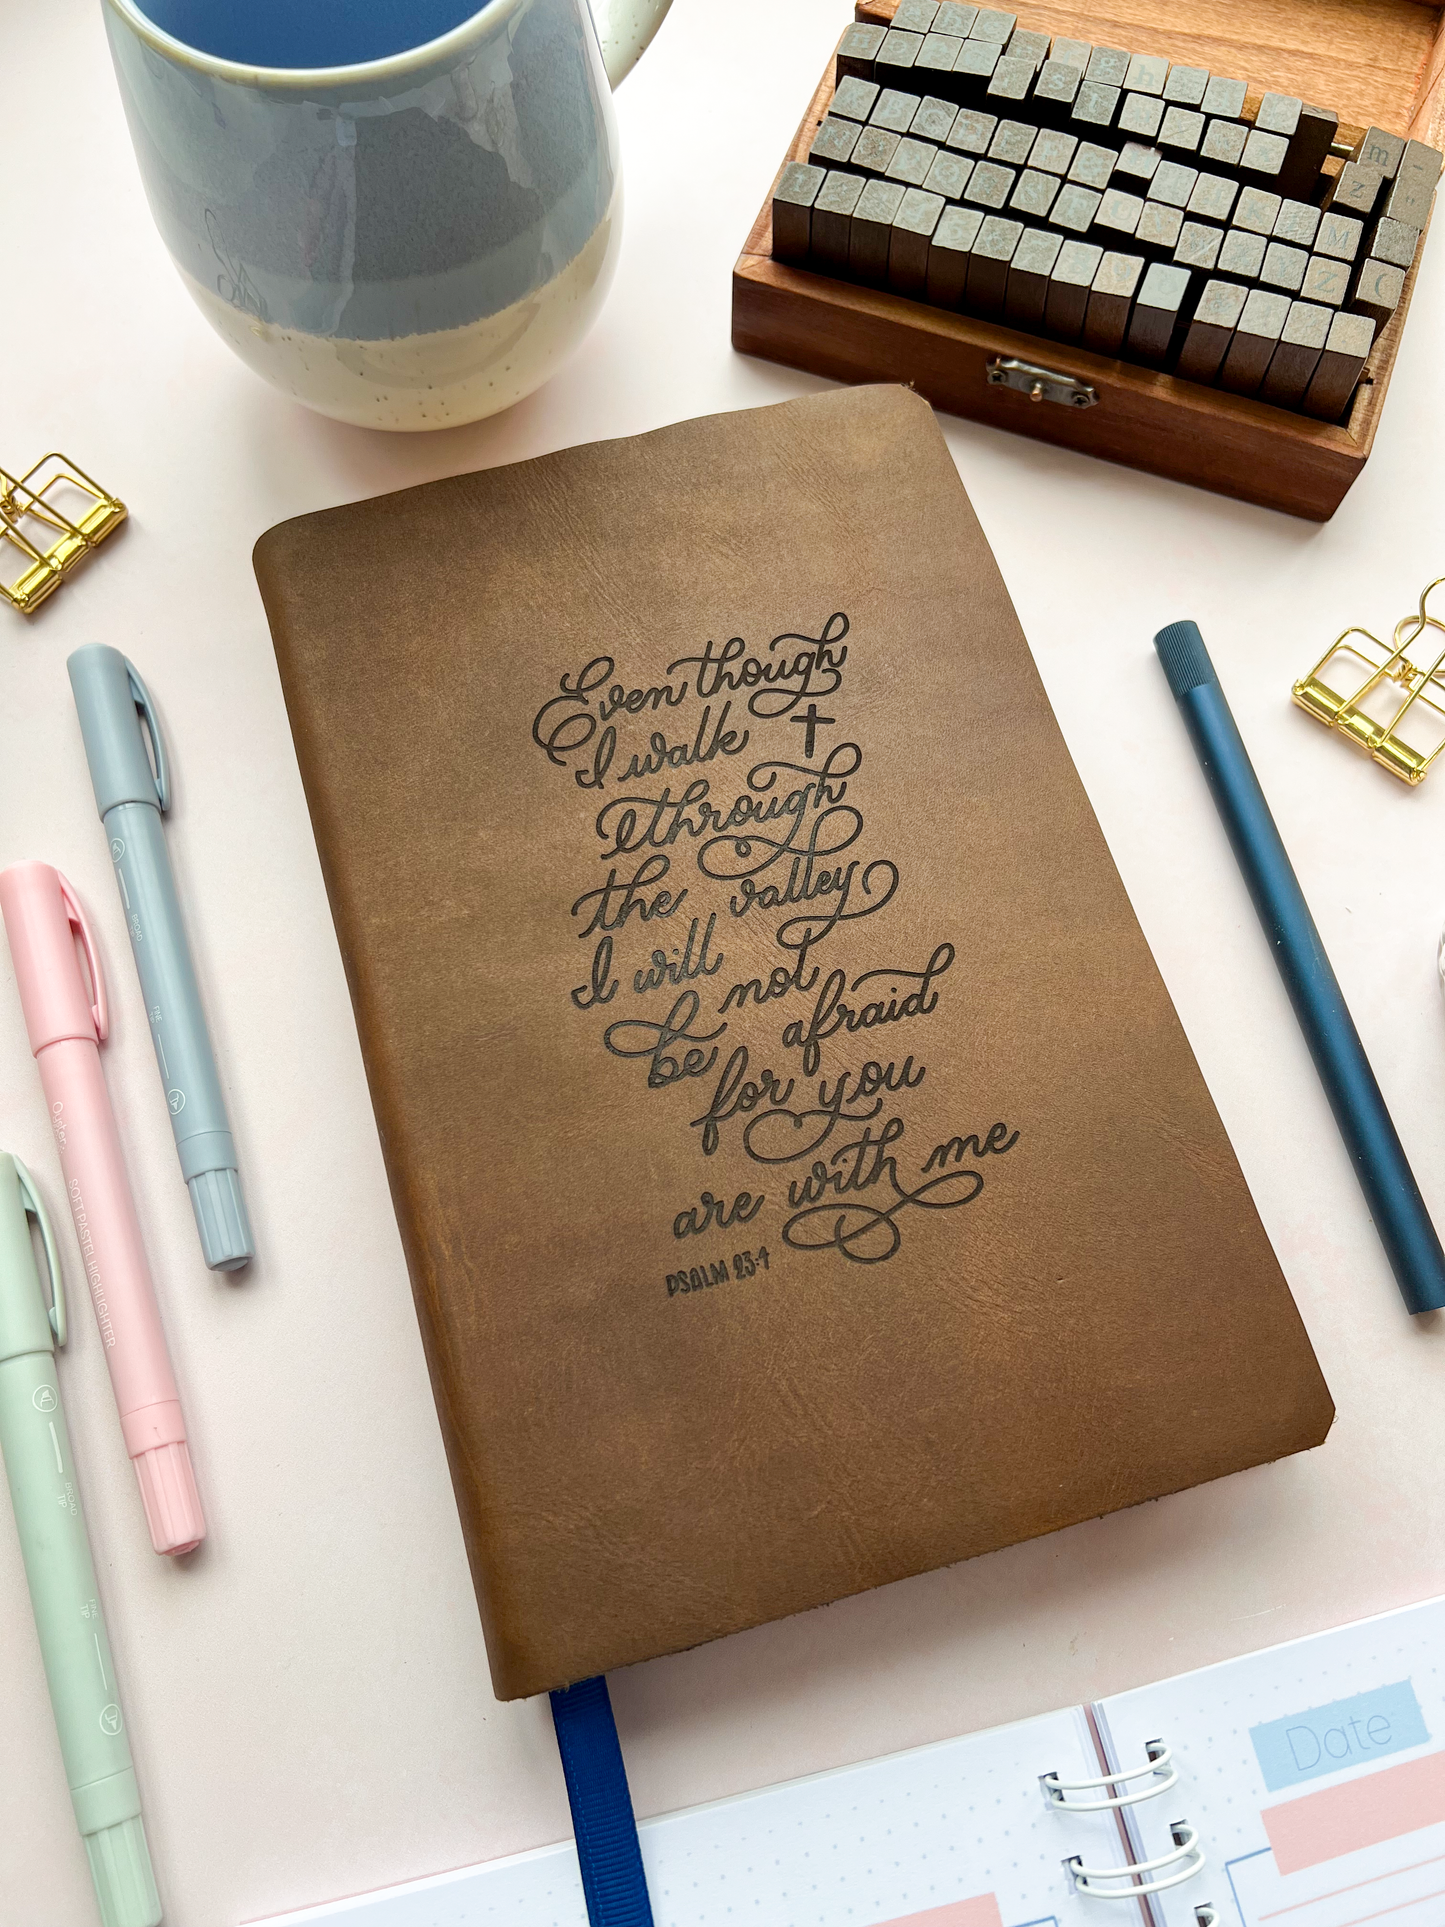 Even though
I walk
through
the valley
I will
be not
afraid
for you
are with me
PSALM 23:4
BROAD
FINE
TIP
SOFT PASTEL HIGHLIGHTER
BROAD
TIP
FINE
TIP
Date
m
-
z
M
Z
(